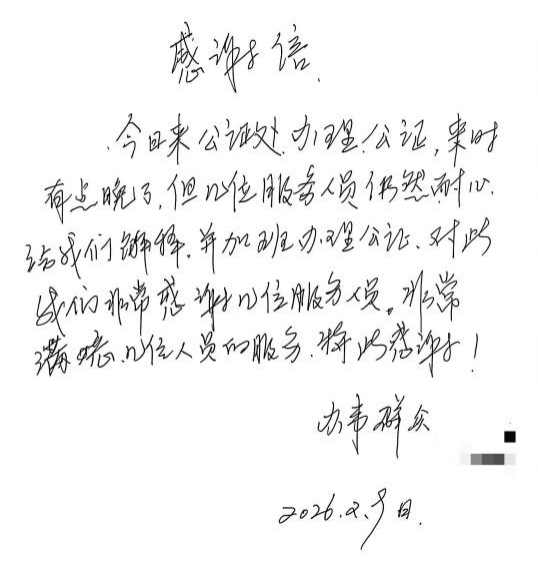 感谢信
今日来公证处办理公证，来时
有点晚了，但几位服务人员仍然耐心
给我们解释，并加班办理公证、对此
我们非常感谢几位服务人员。非常
满意几位人员的服务，特此感谢！
办事群众
2026.2.9日.